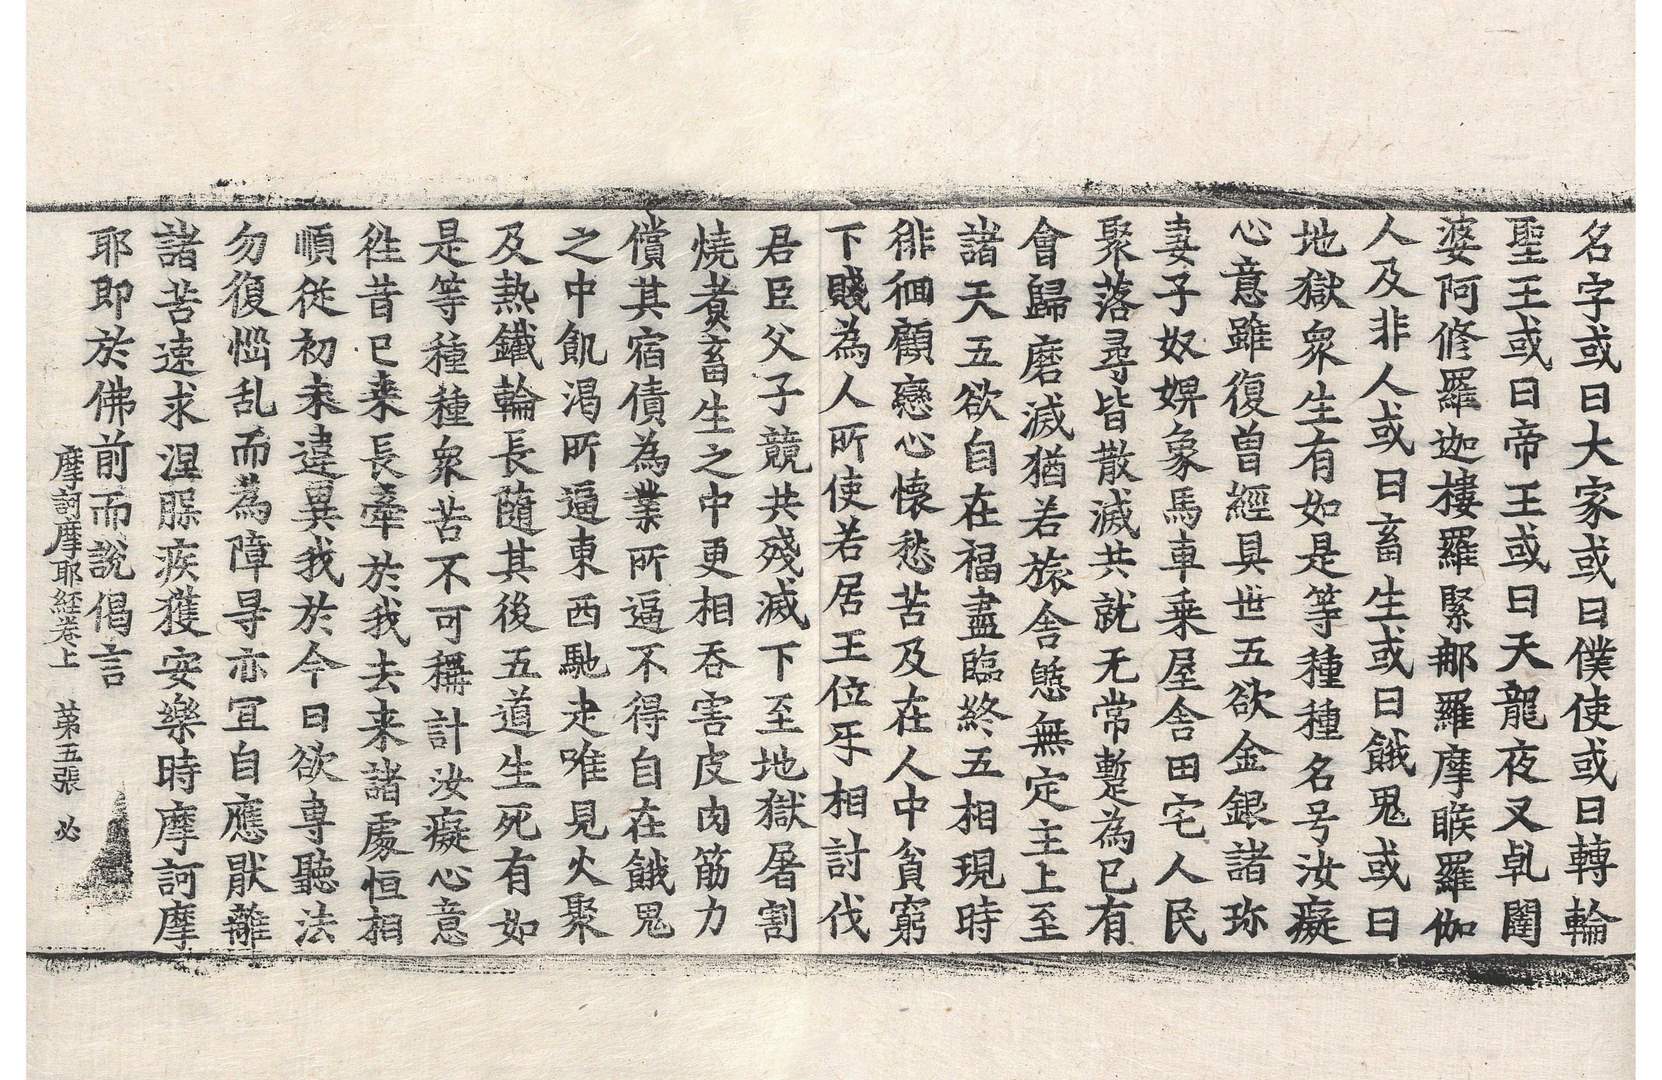 名字或曰大家或曰僕使或曰轉輪
聖王或曰帝王或曰天龍夜叉乹闥
婆阿修羅迦樓羅緊那羅摩睺羅伽
人及非人或曰畜生或曰餓鬼或曰
地獄衆生有如是等種種名号汝癡
心意雖復曽經具世五欲金銀諸珎
妻子奴婢象馬車乗屋舎田宅人民
聚落尋皆散滅共就无常蹔為已有
會歸磨滅猶若旅舎憇無定主上至
諸天五欲自在福盡臨終五相現時
徘徊顧戀心懷愁苦及在人中貧窮
下賤為人所使若居王位㸦相討伐
君臣父子競共殘滅下至地獄屠割
燒煮畜生之中更相吞害皮肉筋力
償其宿債為業所逼不得自在餓鬼
之中飢渴所逼東西馳走唯見火聚
及熱鐵輪長随其後五道生死有如
是等種種衆苦不可稱計汝癡心意
徃昔已来長牽於我去来諸處恒相
順從初未違異我於今日欲専聽法
勿復惱乱而為障㝵亦冝自應猒離
諸苦速求涅槃疾獲安樂時摩訶摩
耶即於佛前而說偈言
摩訶摩耶經卷上 苐五張 必